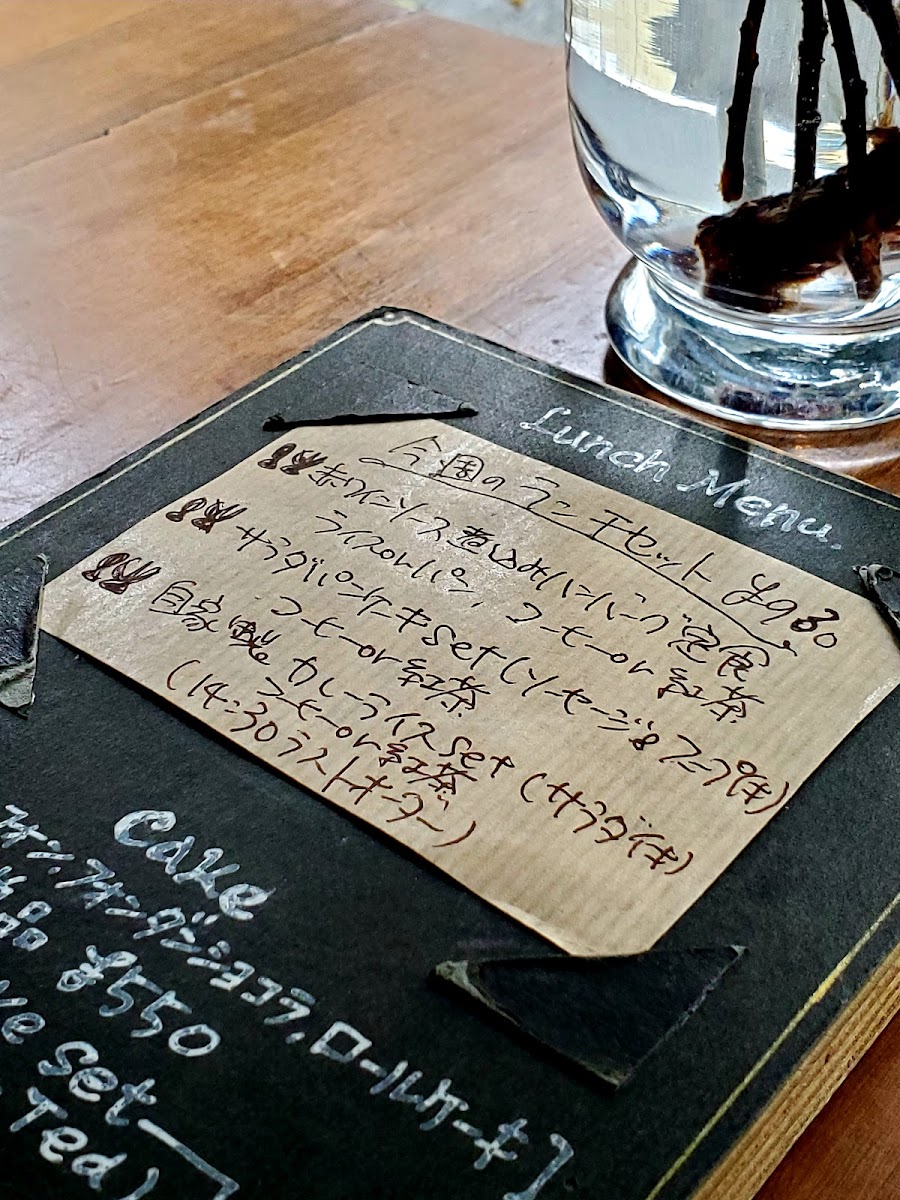 Lunch Menu.
今週のランチセット ¥930
ホワイトソース煮込みハンバーグ定食
ライスorパン、コーヒーor紅茶
サラダパンケーキset(ソーセージ&スープ付)
コーヒーor紅茶
自家製カレーライスset(サラダ付)
コーヒーor紅茶
(14:30ラストオーダー)
Cake
フォンダンショコラ,ロールケーキ]
品 ¥550
Set
Tea)